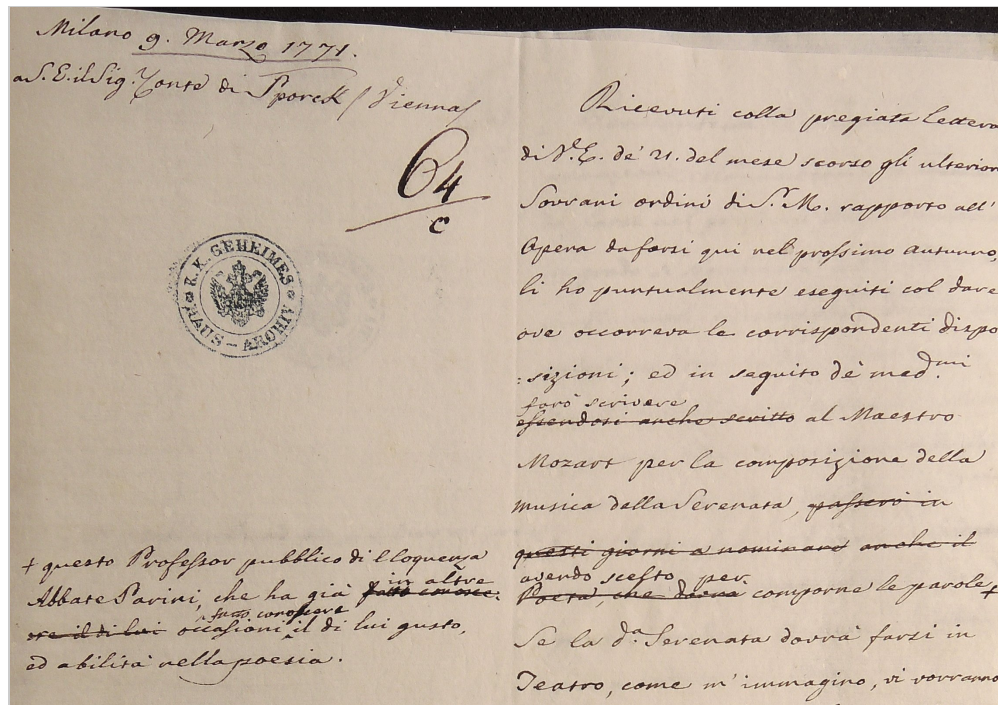 Milano 9. Marzo 1771.
a S. E. il Sig. Conte di Sporck / Vienna /
64
c
K. K. GEHEIMES
HAUS – ARCHIV
+ questo Professor pubblico di Eloquenza
Abbate Parini, che ha già fatto conosce- in altre
re il di lui occasioni fatto conoscere il di lui gusto,
ed abilità nella poesia.
Ricevuti colla pregiata lettera
di V. E. de' 21. del mese scorso gli ulterior
Sovrani ordini di S. M. rapporto all'
Opera da farsi qui nel prossimo Autunno,
li ho puntualmente eseguiti col dare
ove occorreva le corrispondenti dispo
:sizioni; ed in seguito de' med.mi
farò scrivere
essendosi anche scritto al Maestro
Mozart per la composizione della
musica della Serenata, passerò in
questi giorni a nominare anche il
avendo scelto per
Poeta, che dovrà comporne le parole +
Se la d.a Serenata dovrà farsi in
Teatro, come m'immagino, vi vorranno